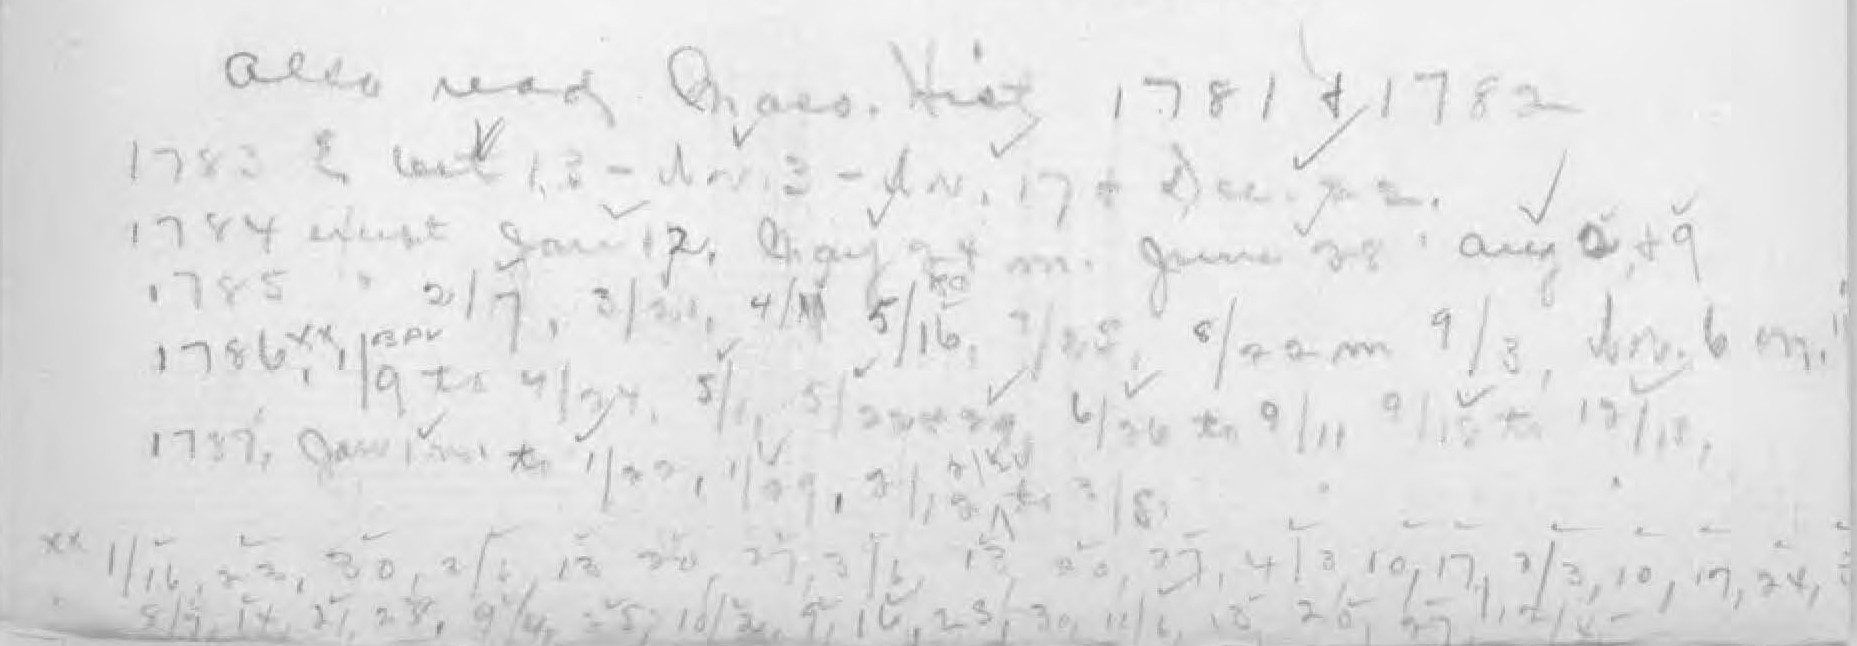 also read Mass. Hist 1781 + 1782
1783 & Oct 13 - Nov. 3 - Nov. 17 + Dec. 22.
1784 except Jan 12, May 24 m. June 28, Aug 2, + 9
1785 " 2/7, 3/21, 4/11 5/16, 7/25, 8/22 m 9/3, Nov. 6 m,
1786,xx 1/9 to 4/24, 5/1, 5/22 + 29, 6/26 to 9/11 9/18 to 12/18,
1787, Jan 1 m to 1/22, 1/29, 2/ to 3/8.
xx 1/16, 23, 30, 2/6, 13 20, 27, 3/6, 13, 20, 27, 4/3, 10, 17, 7/3, 10, 17, 24,
8/7, 14, 21, 28, 9/4, 25, 10/2, 9, 16, 23, 30, 11/6, 13, 20, 27,